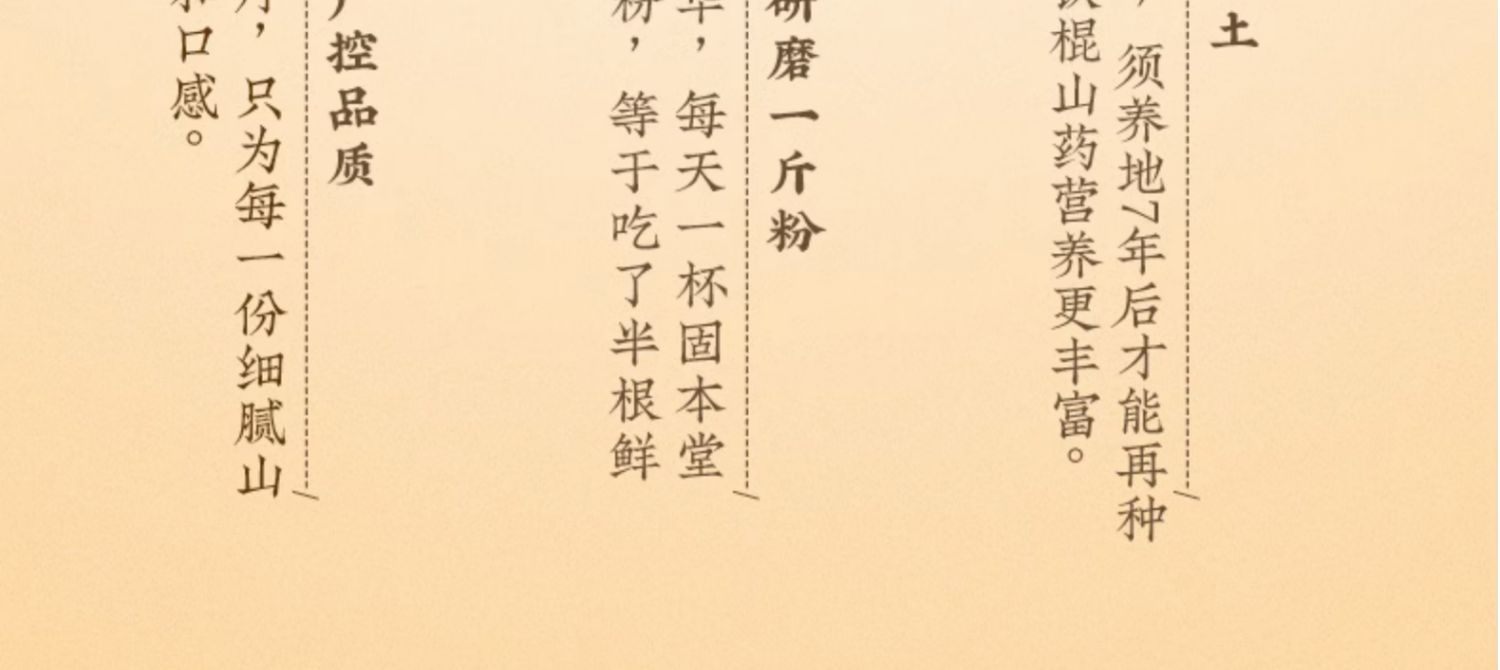 土
，须养地7年后才能再种
棍山药营养更丰富。
研磨一斤粉
，每天一杯固本堂
粉，等于吃了半根鲜
控品质
，只为每一份细腻山
口感。